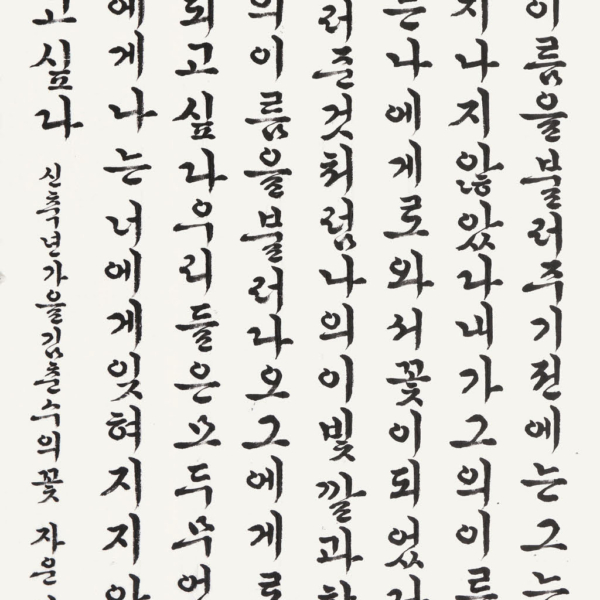 이름을불러주기전에는그는
지나지않았다내가그의이름
는나에게로와서꽃이되었다
러준것처럼나의이빛깔과
의이름을불러다오그에게로
되고싶다우리들은모두무엇
에게나는너에게잊혀지지않
고싶다 신축년가을김춘수의꽃 자운